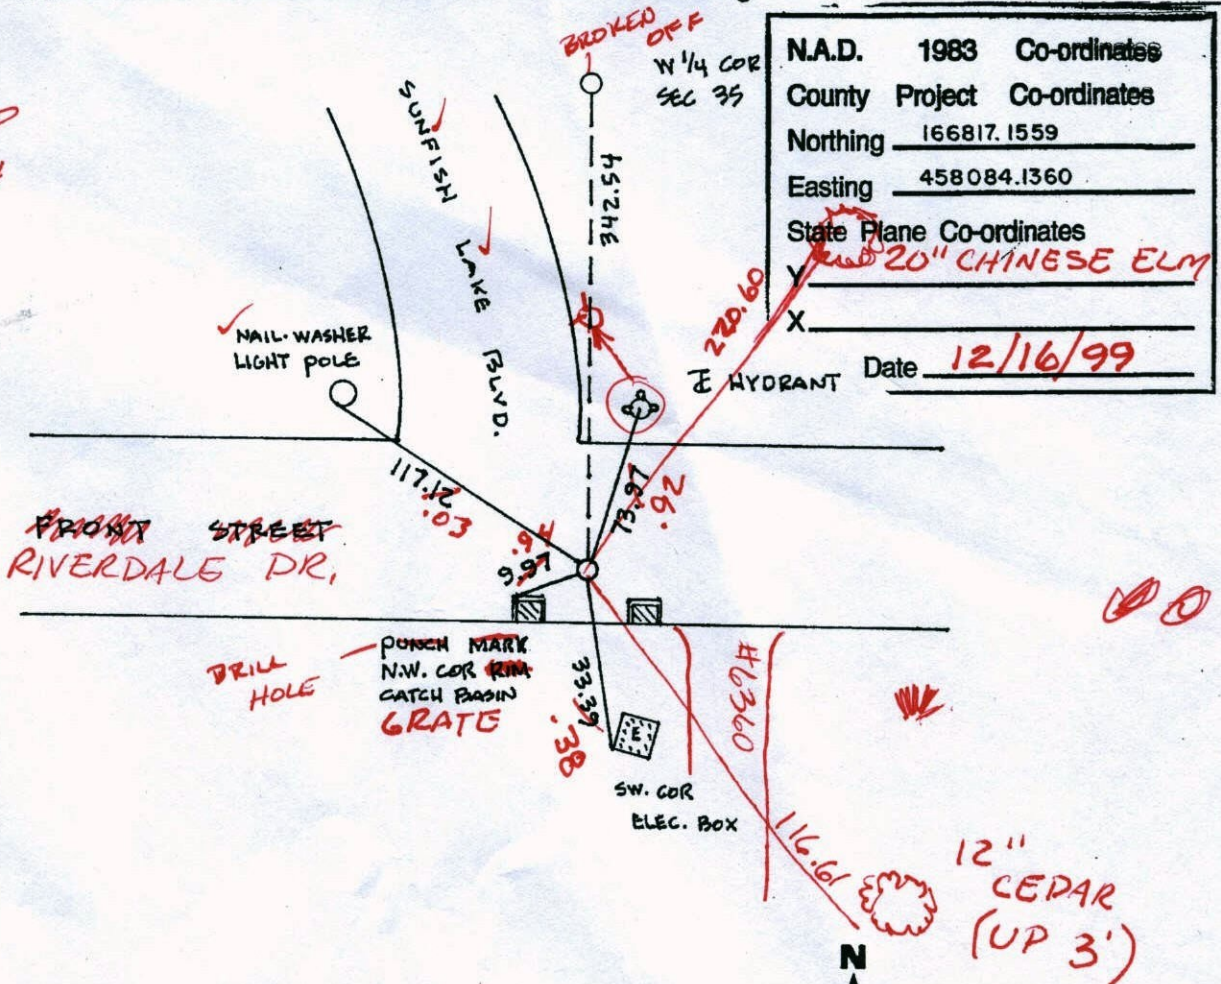 BROKEN
OFF
W 1/4 COR
SEC 35
N.A.D. 1983 Co-ordinates
County Project Co-ordinates
Northing 166817.1559
Easting 458084.1360
State Plane Co-ordinates
20" CHINESE ELM
Y
X
Date 12/16/99
SUNFISH
LAKE
BLVD.
342.54
220.60
NAIL-WASHER
LIGHT POLE
HYDRANT
117.12
.03
73.97
.92
FRONT STREET
RIVERDALE DR.
9.97
PUNCH MARK
N.W. COR RIM
CATCH BASIN
GRATE
DRILL
HOLE
33.39
.38
E
#6360
SW. COR
ELEC. BOX
116.61
12"
CEDAR
(UP 3')
N